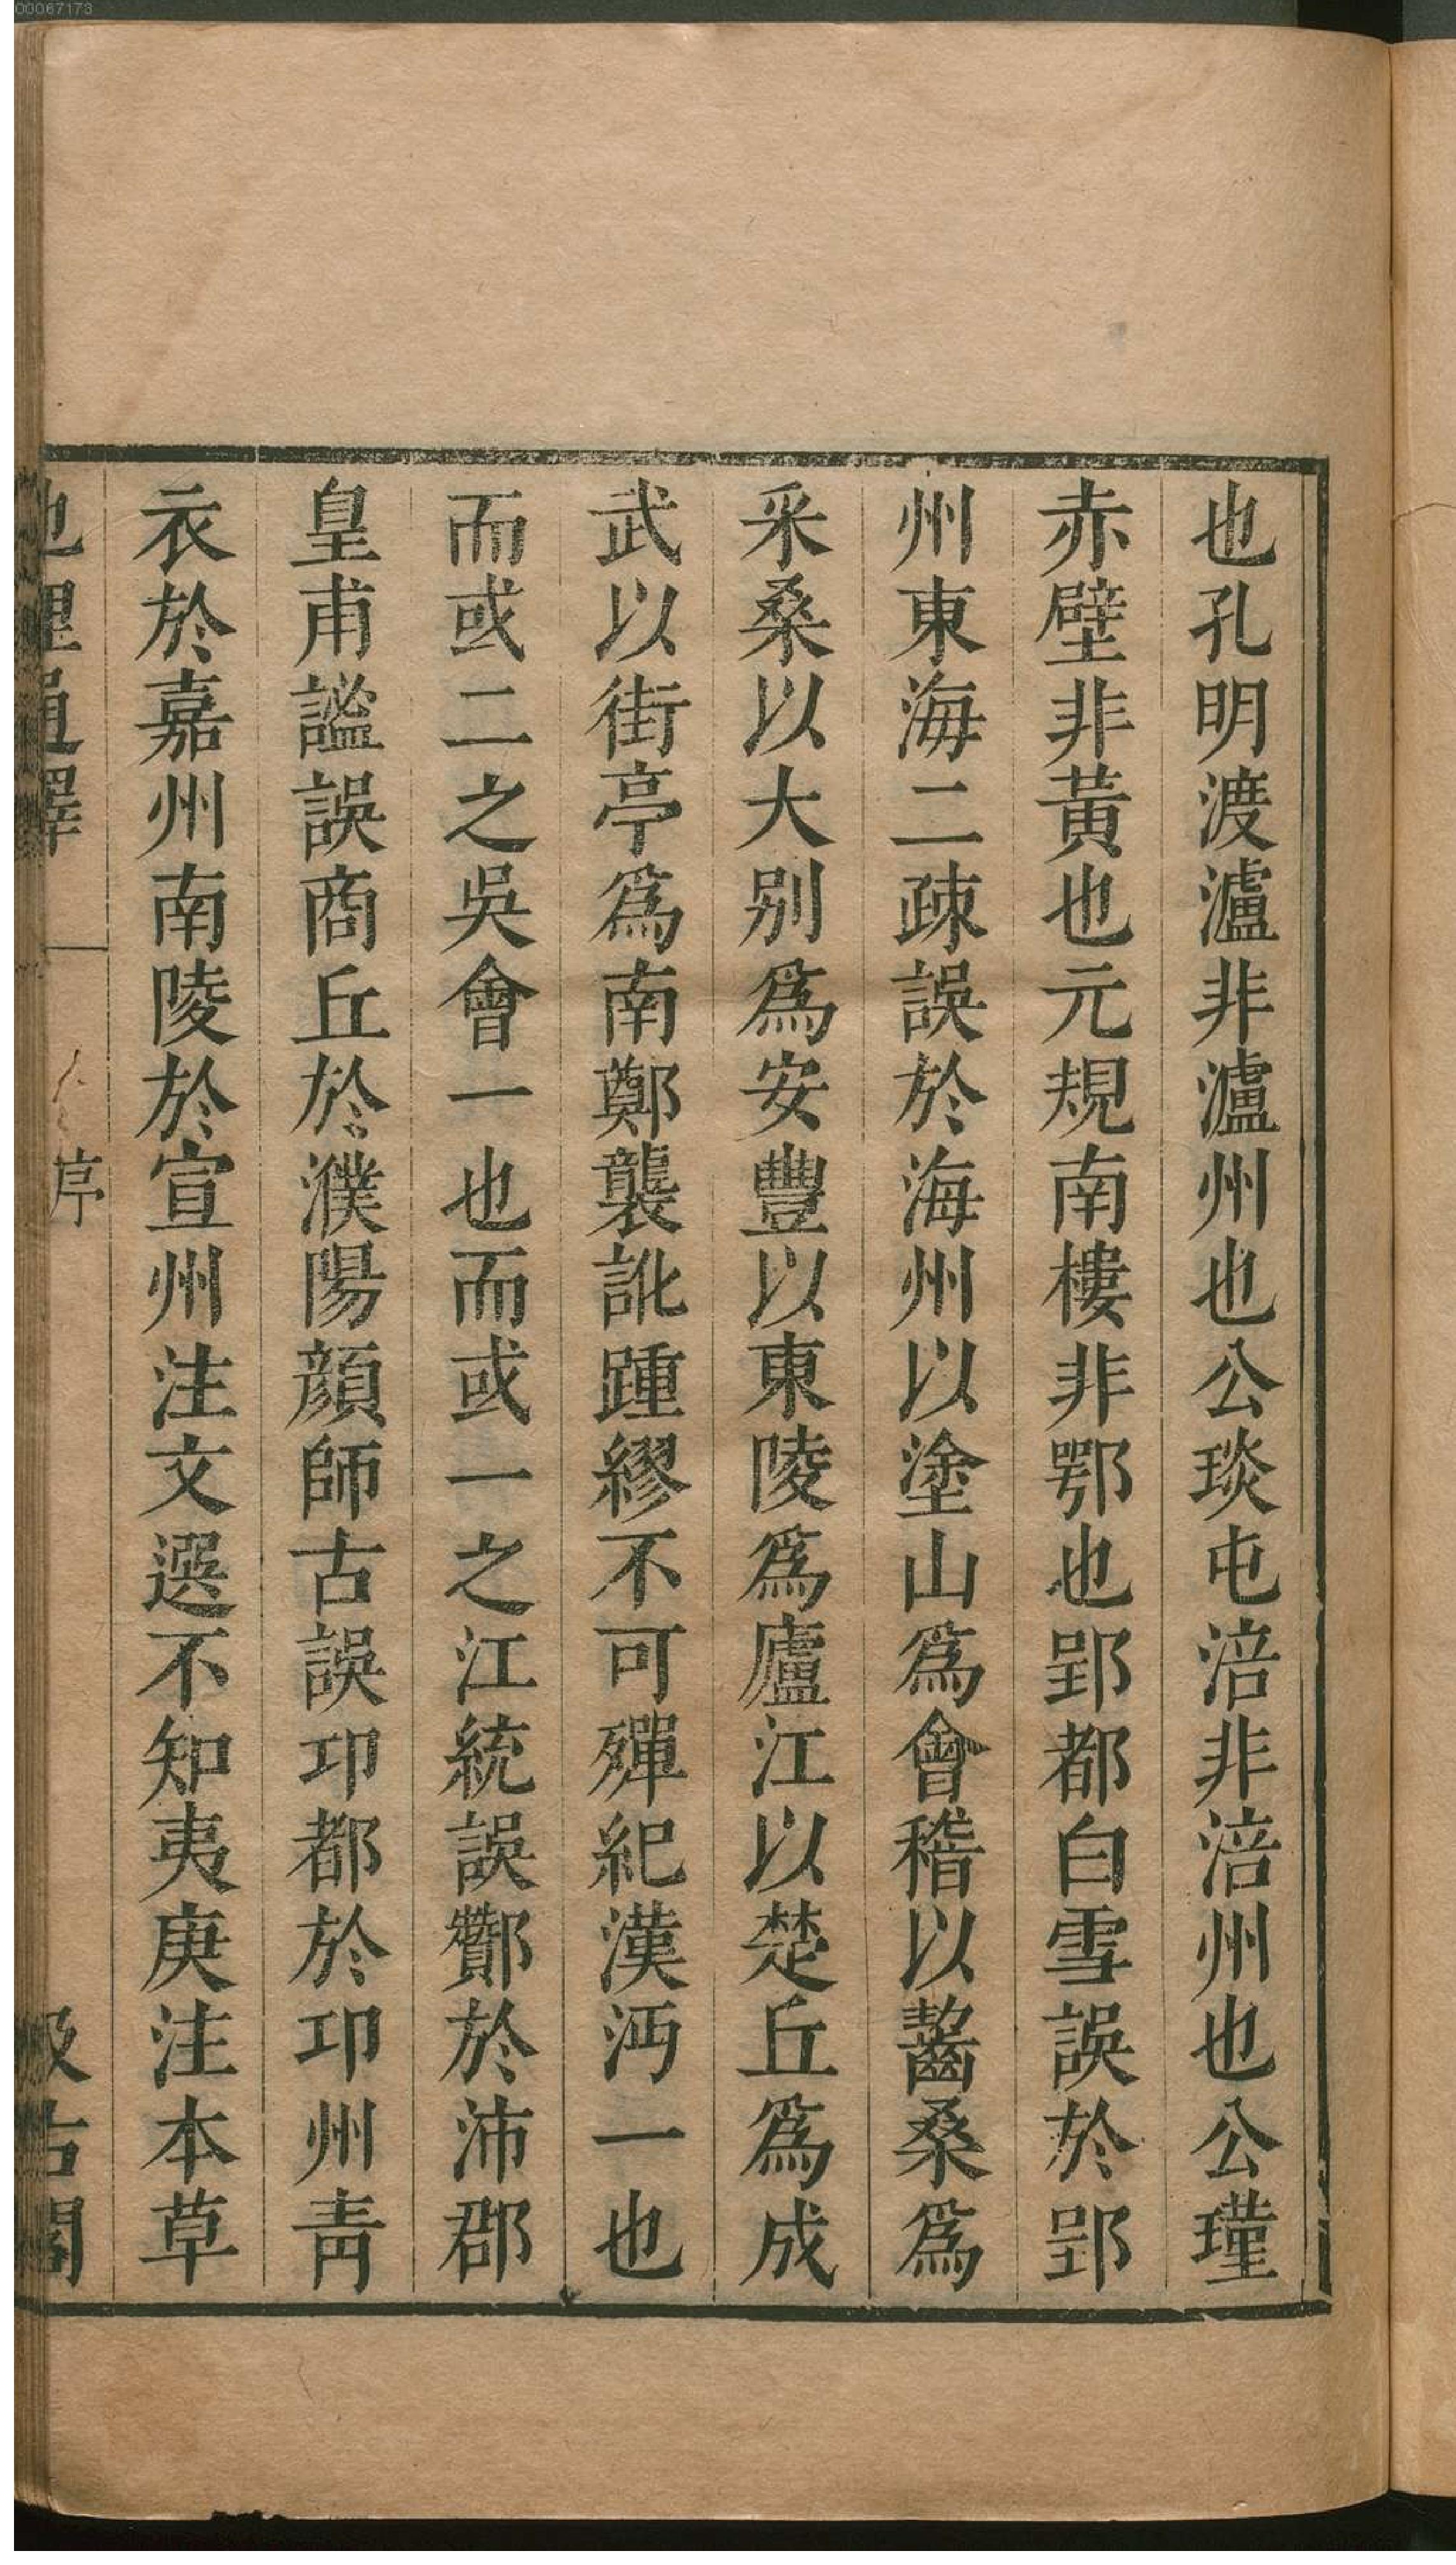 00067173
也孔明渡瀘非瀘州也公琰屯涪非涪州也公瑾
赤壁非黃也元規南樓非鄂也郢都白雪誤於郢
州東海二疎誤於海州以塗山爲會稽以齧桑爲
采桑以大别爲安豐以東陵爲廬江以楚丘爲成
武以街亭爲南鄭襲訛踵繆不可殫紀漢沔一也
而或二之吳會一也而或一之江統誤酇於沛郡
皇甫謐誤商丘於濮陽顔師古誤邛都於邛州青
衣於嘉州南陵於宣州注文選不知夷庚注本草
地理通釋 序 汲古閣